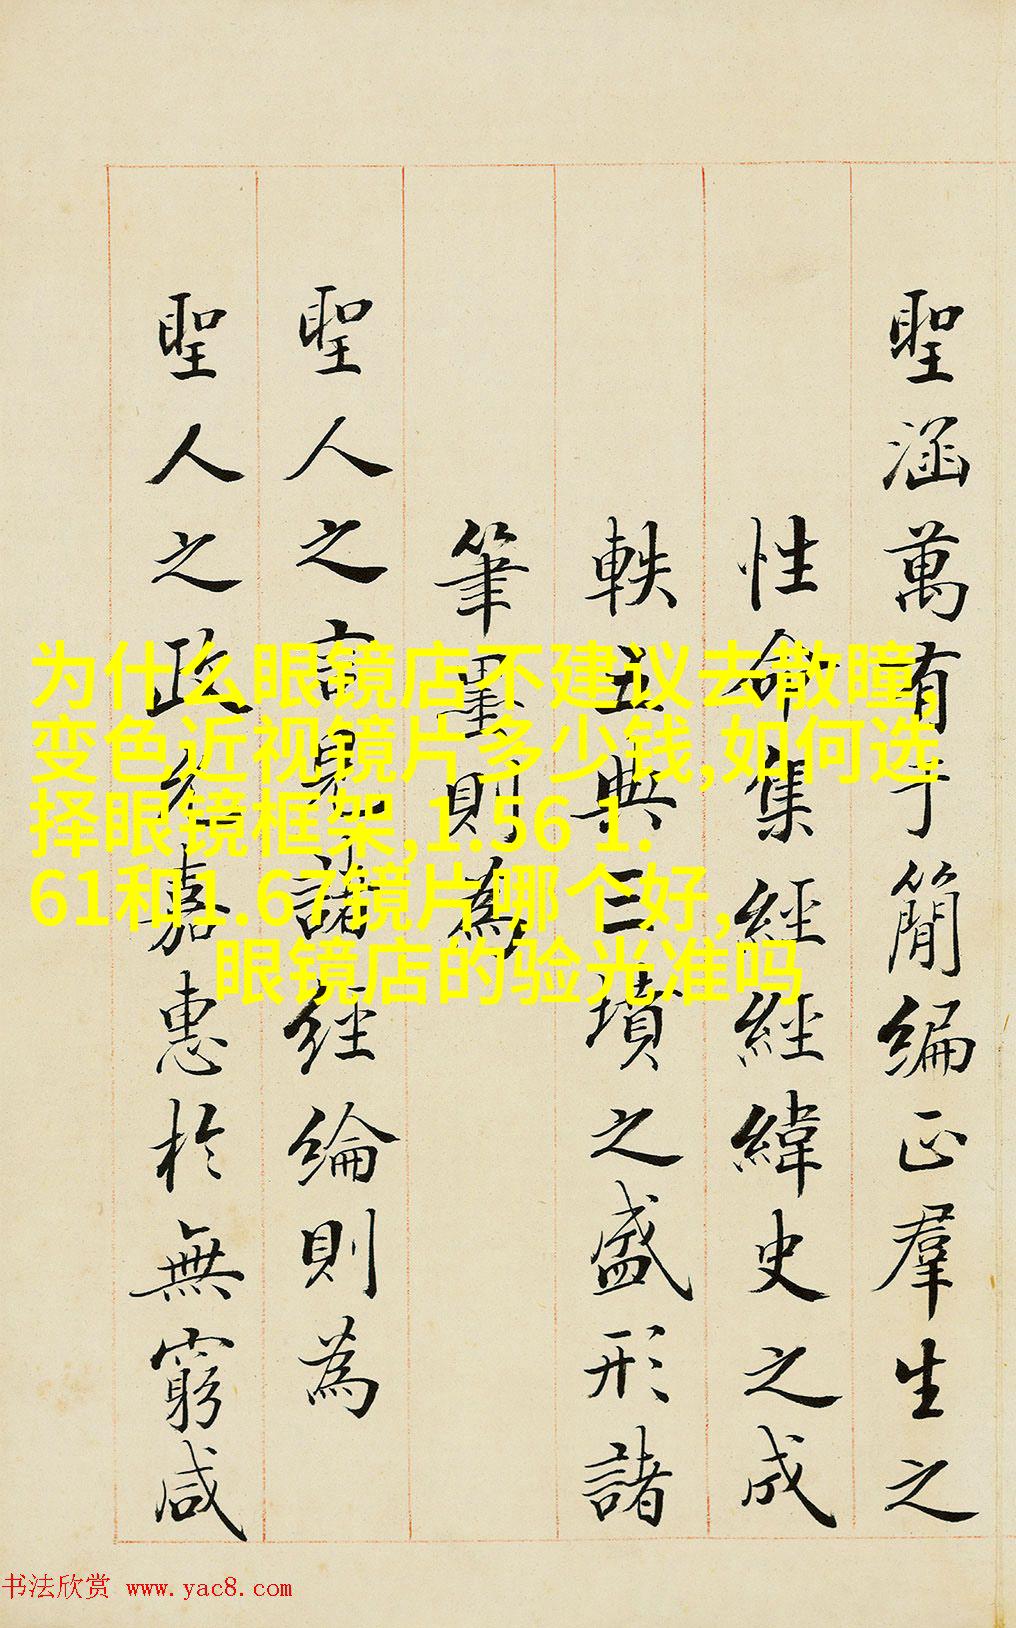 聖涵萬有于簡編正羣生之
性命集經經緯史之成
軼五典三墳之盛形諸
筆墨則為
聖人之言諸經綸則為
聖人之政嘉惠於無窮咸
为什么眼镜店不建议去散瞳,
变色近视镜片多少钱,如何选
择眼镜框架,1.56 1.
61和1.67镜片哪个好,
眼镜店的验光准吗
书法欣赏 www.yac8.com